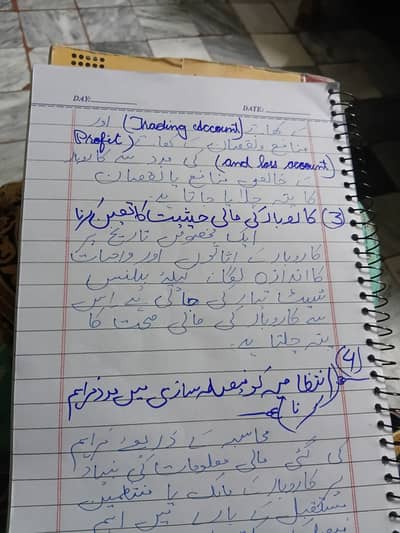 DAY:
DATE:
کے کھاتے (Trading account) اور
منافع ونقصان کے کھاتے (Profit
and loss account) کی مدد سے کاروبار
کے خالص منافع یا نقصان
کا پتہ چلایا جاتا ہے۔
(3) کاروبار کی مالی حیثیت کا تعین کرنا
ایک مخصوص تاریخ پر
کاروبار کے اثاثوں اور واجبات
کا اندازہ لگانے کیلئے بیلنس
شیٹ تیار کی جاتی ہے اس
سے کاروبار کی مالی صحت کا
پتہ چلتا ہے۔
(4) انتظامیہ کو فیصلہ سازی میں مدد فراہم
کرنا
محاسبہ کے ذریعے فراہم
کی گئی مالی معلومات کی بنیاد
پر کاروبار کے مالک یا منتظمین
مستقبل کے بارے میں اہم